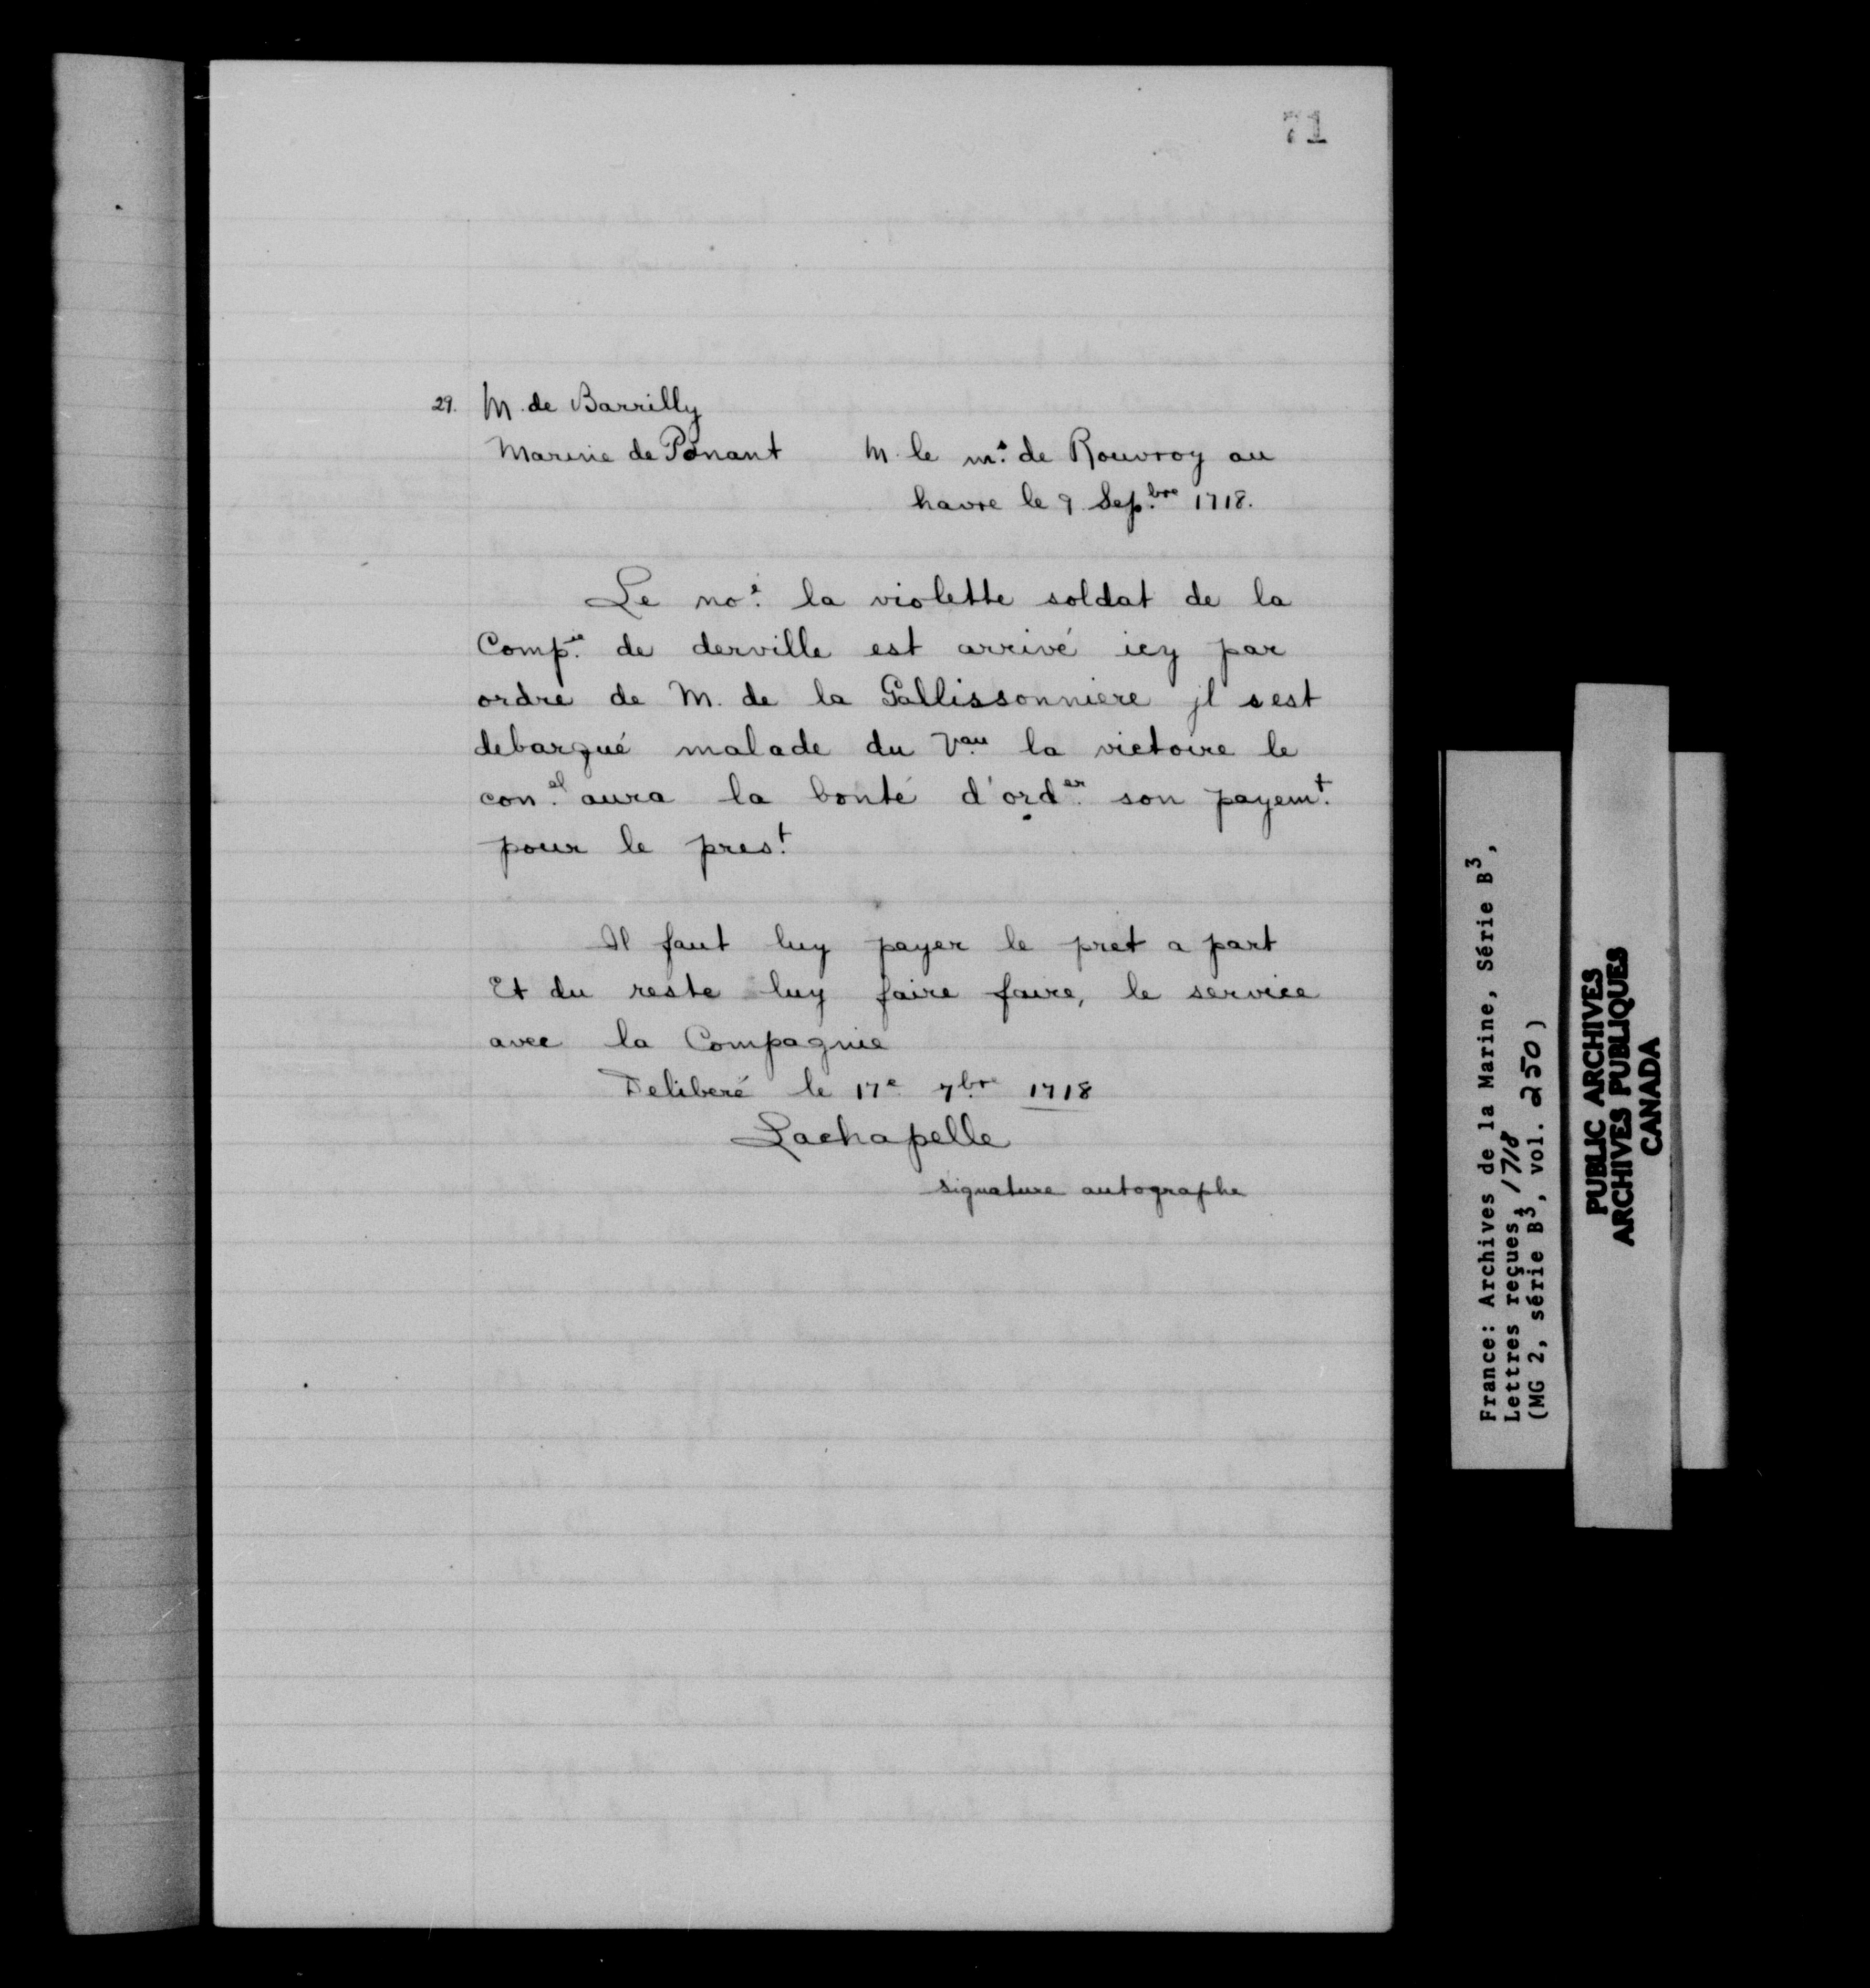 71
29. M. de Barrilly
Marine de Ponant M. le m.s de Rouvroy au
havre le 9 Sep.bre 1718.
Le no.é la violette soldat de la
Comp.ie de derville est arrivé icy par
ordre de M. de la Gallissonniere jl s est
debarqué malade du V.au la victoire le
con.el aura la bonté d'ord.er son payem.t
pour le pres.t
Il faut luy payer le pret a part
Et du reste luy faire faire, le service
avec la Compagnie
Deliberé le 17e 7.bre 1718
Lachapelle
signature autographe
France: Archives de la Marine, Série B3,
Lettres reçues, 1718
(MG 2, série B3, vol. 250)
PUBLIC ARCHIVES
ARCHIVES PUBLIQUES
CANADA